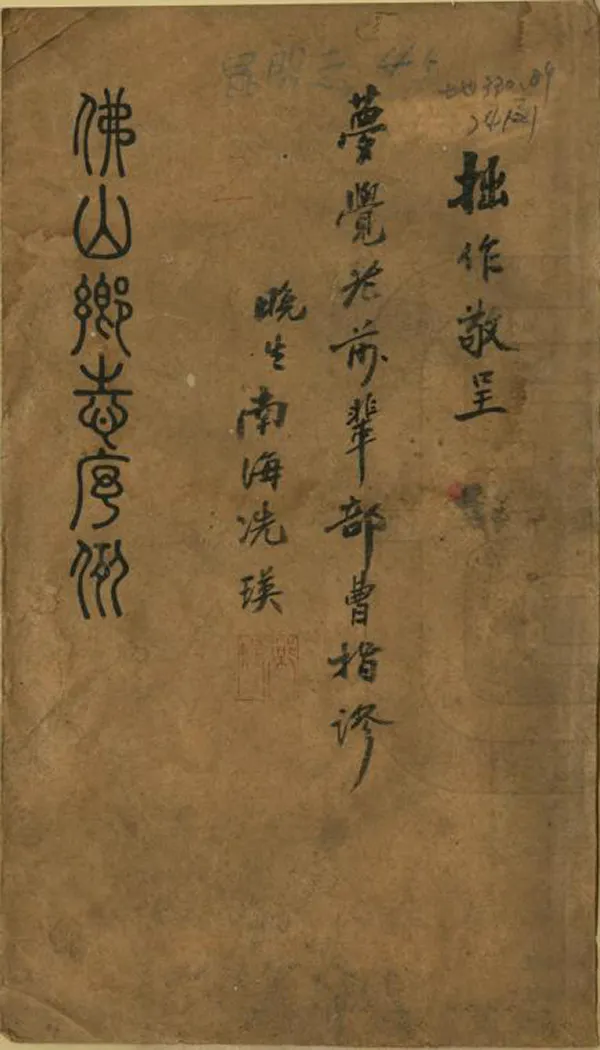 拙作敬呈
夢覺老前輩部曹指謬
晚生南海冼瑛
佛山鄉志序例